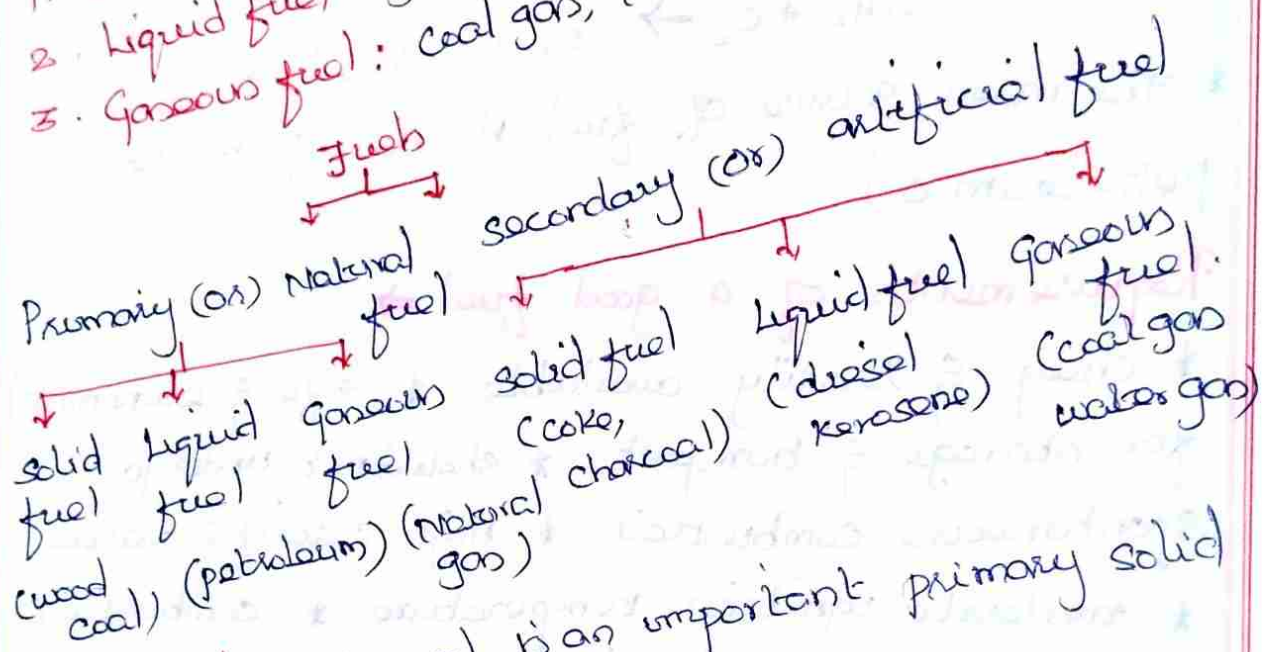 2. Liquid fuel,
3. Gaseous fuel: Coal gas,
Fuels
Primary (or) Natural fuel
secondary (or) artificial fuel
solid fuel (wood coal)
Liquid fuel (petroleum)
Gaseous fuel (Natural gas)
solid fuel (coke, charcoal)
Liquid fuel (diesel kerosene)
Gaseous fuel. (coal gas water gas)
is an important primary solid